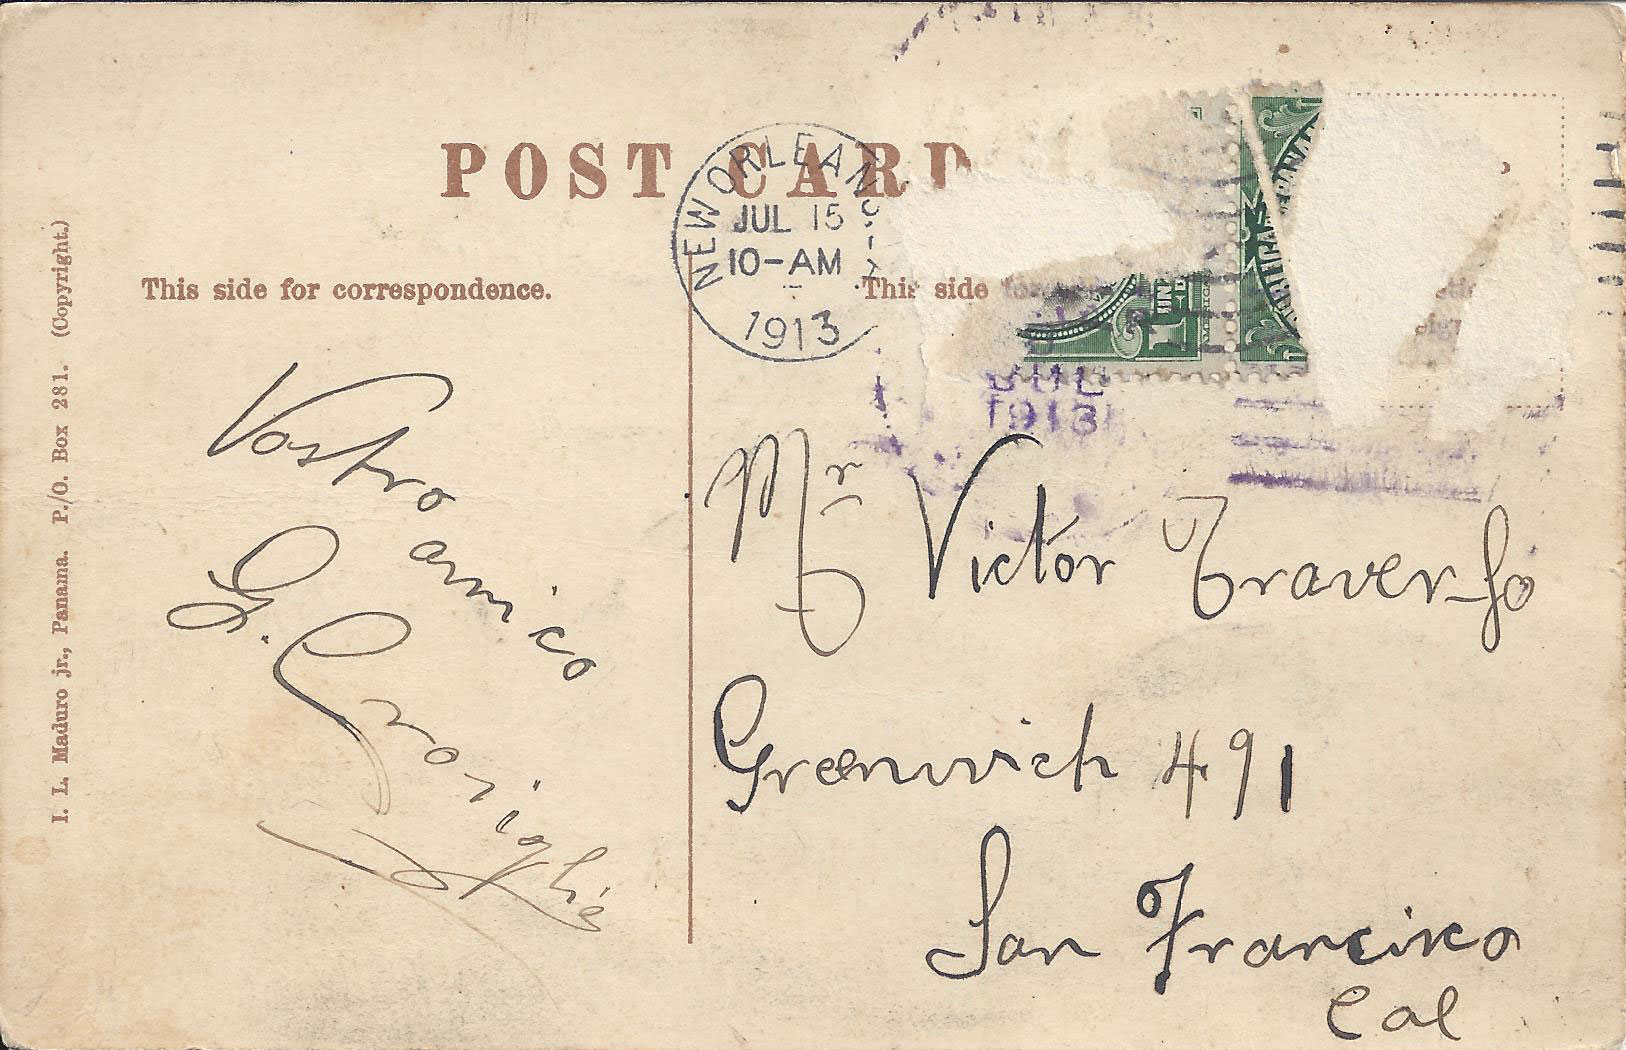 POST CARD
NEW ORLEANS
JUL 15
10-AM
1913
This side for correspondence.
This side
JUL
1913
I. L. Maduro jr., Panama. P./O. Box 281. (Copyright.)
Vostro
amico
G.
Mr Victor Traverso
Greenwich 491
San Francisco
Cal